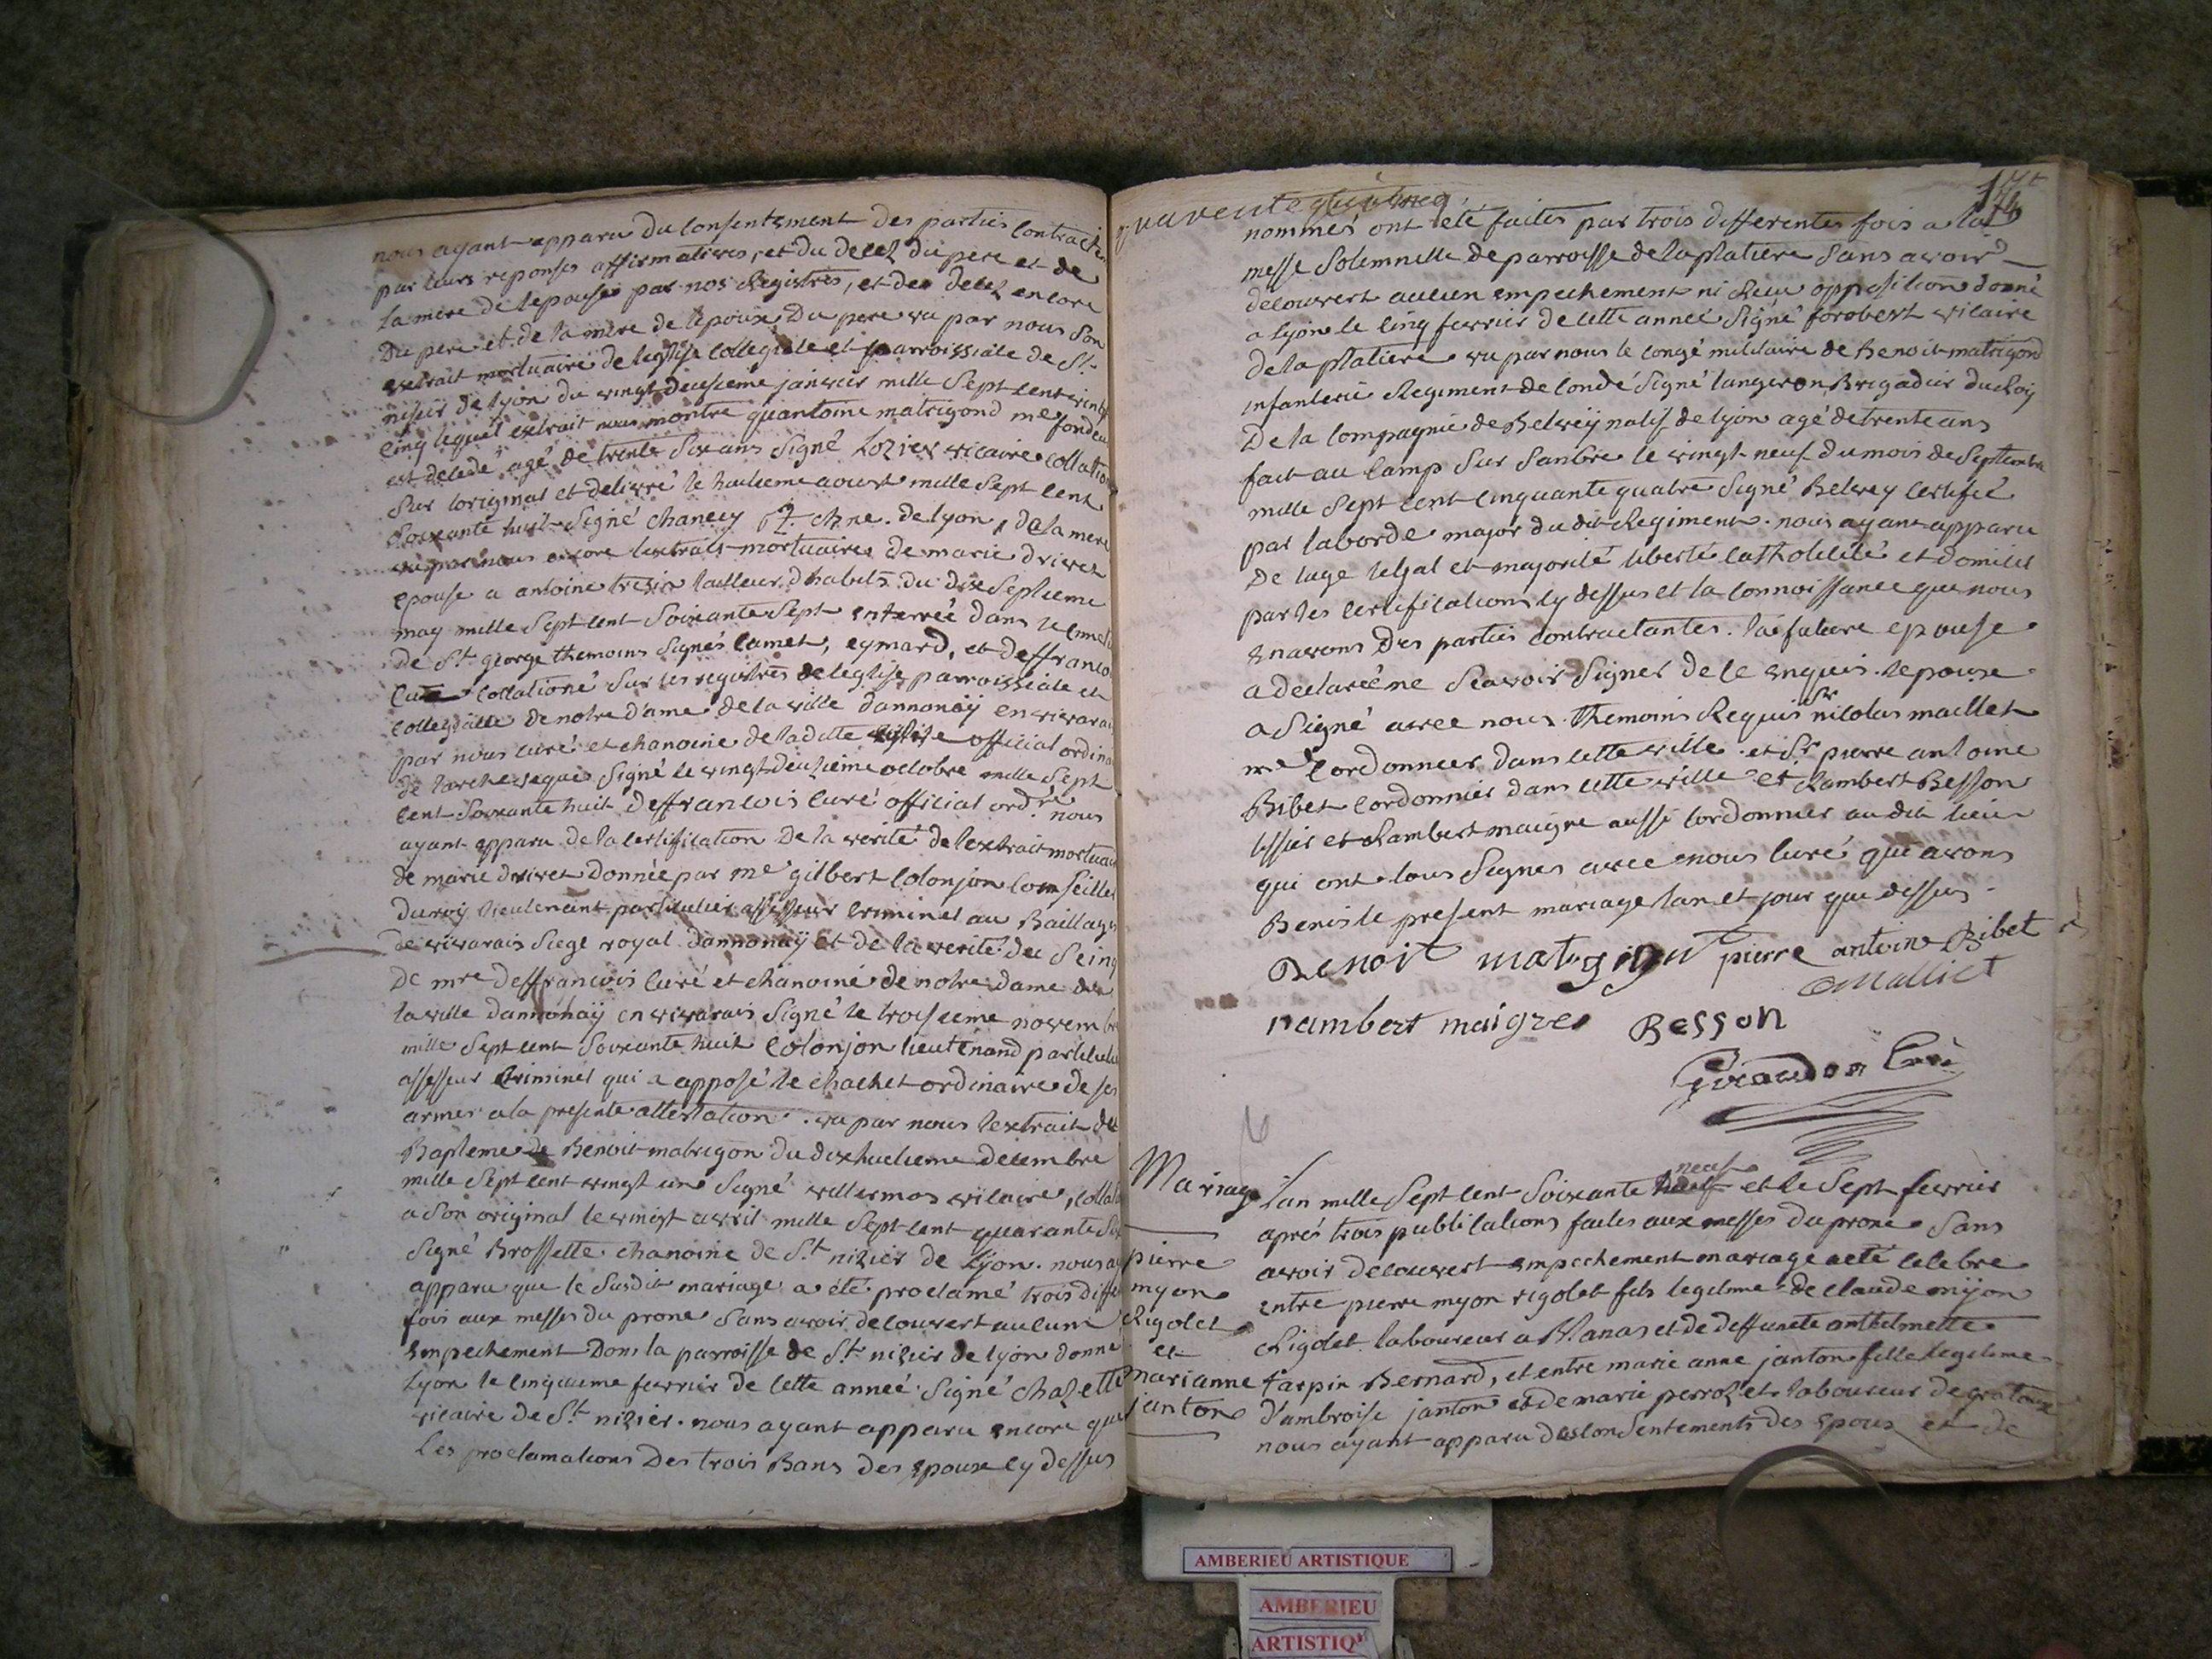 nous ayant apparu du consentement des parties contracte
par leurs reponses affirmatives, et du decez du pere et de
la mere de lepouse par nos Registres, et des decez encore
Du pere et de la mere de lepoux Du pere vu par nous son
extrait mortuaire de leglise collegiale et parroissiale de St.
nisier de lyon du vingt deuxieme janvier mille sept cent vingt
cinq lequel extrait nous montre quantoine matrigond me fondeu
est decedé agé de trente six ans signé Lozier vicaire collation
sur loriginal et delivré le huitieme aoust mille sept cent
soixante huit signé chanecy chne. de lyon, de la mere
vu par nous encore lextrait mortuaire de marie drivet
epouse a antoine trezir tailleur dhabits du dix septieme
may mille sept cent soixante sept enterrée dans le cimet
de St. george themoins signés camet, eymard, et deffranco
curé collationé sur les registres de leglise parroissiale et
collegialle de notre dame de la ville dannonay en vivarai
par nous curé et chanoine de la dite eglise official ordina
de larcheveque signé le vingt deuxieme octobre mille sept
cent soixante huit deffrancois curé official ordre. nous
ayant apparu de la certification De la verité de lextrait mortuai
de marie drivet donnée par me gilbert colonjon conseiller
du roy lieutenant particulier assesseur criminel au Baillage
de vivarais siege royal dannonay et de la verité du seing
De mre deffrancois curé et chanoine de notre dame de
la ville dannonay en vivarais signé le troisieme novembre
mille sept cent soixante huit colonjon lieutenand particulie
assesseur criminel qui a apposé le chachet ordinaire de ses
armes a la presente attestation. vu par nous lextrait de
Bapteme de Benoit matrigon du dix huitieme decembre
mille sept cent vingt un signé willermos vicaire, collat
a son original le vingt avril mille sept cent quarante six
signé Brossette chanoine de St. nizier de lyon. nous ay
apparu que le susdit mariage a eté proclamé trois diffe
fois aux messes du prone sans avoir decouvert aucun
empechement Dans la parroisse de St. nizier de lyon donné
Lyon le cinquieme fevrier de cette année signé chazette
vicaire de St. nizier. nous ayant apparu encore que
Les proclamations Des trois Bans des epoux cy dessus
quarente quatrieg
nommés ont été faites par trois differentes fois a la
messe solemnelle de parroisse de la platiere sans avoir
decouvert aucun empechement ni Reçu opposition donné
a lyon le cinq fevrier de cette année signé forobert vicaire
De la platiere vu par nous le congé militaire de Benoit matrigond
infanterie Regiment de condé signé langeron Brigadier du Roy
De la compagnie de Belvey natif de lyon agé de trente ans
fait au camp sur sambre le vingt neuf du mois de septembre
mille sept cent cinquante quatre signé Belvey certifié
par laborde major du dit Regiment. nous ayant apparu
De lage legal et majorité liberté catholicité et domicile
par les certifications cy dessus et la connoissance que nous
en avons Des parties contractantes. la future epouse
a declaré ne scavoir signer de ce enquis. lepoux
a signé avec nous. themoins Requis Sr nicolas maillet
me cordonnier dans cette ville et Sr. pierre antoine
Bibet cordonnier dans cette ville et Rambert Besson
tissier et Rambert maigre aussi cordonnier au dit lieu
qui ont tous signes avec nous curé qui avons
Beni le present mariage lan et jour que dessus.
Benoit matrigon pierre antoine Bibet
Malliet
rambert maigre Besson
Giraudon Curé
Mariage
pierre
myon
Rigolet
et
marianne
janton
neuf
lan mille sept cent soixante et le sept fevrier
aprés trois publications faites aux messes du prone sans
avoir decouvert empechement mariage a eté celebre
entre pierre myon rigolet fils legitime de claude myon
Rigolet laboureur a Vanas et de deffuncte anthelmette
tarpin Bernard, et entre marie anne janton fille legitime
d'ambroise janton et de marie perroz et laboureur de gratoux
nous ayant apparu des consentements des epoux et de
AMBERIEU ARTISTIQUE
AMBERIEU
ARTISTIQ